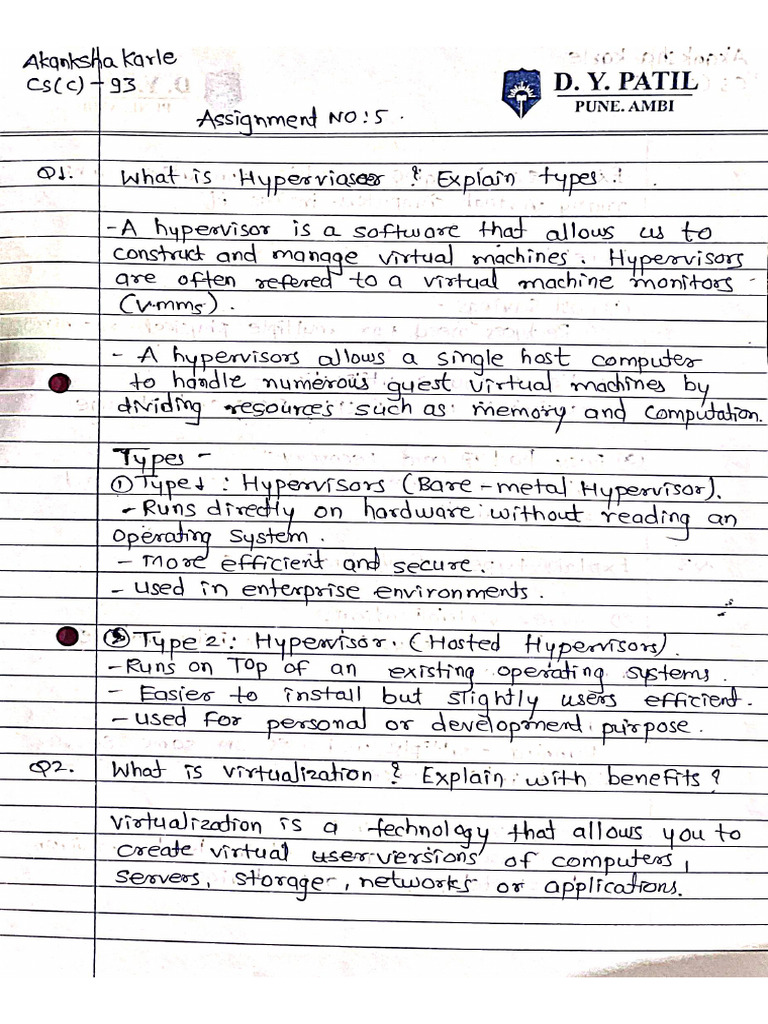 Akanksha Karle
CS(C) - 93
D. Y. PATIL
PUNE. AMBI
Assignment NO : 5 .
Q1. What is Hyperviasor ? Explain types .
- A hypervisor is a software that allows us to
construct and manage virtual machines. Hypervisors
are often refered to a virtual machine monitors
(VMMS) .
- A hypervisors allows a single host computer
to handle numerous guest virtual machines by
dividing resources such as memory and computation.
Types -
① Type 1 : Hypervisors (Bare-metal Hypervisor).
- Runs directly on hardware without reading an
operating system .
- more efficient and secure.
- used in enterprise environments .
② Type 2 : Hypervisor. (Hosted Hypervisors).
- Runs on Top of an existing operating systems.
- Easier to install but slightly users efficient.
- used for personal or development purpose.
Q2. What is virtualization ? Explain with benefits ?
Virtualization is a technology that allows you to
create virtual user versions of computers,
servers, storage, networks or applications.